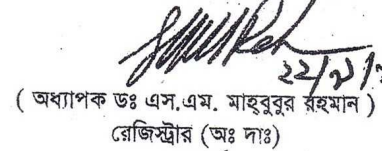 22/
( অধ্যাপক ডঃ এস.এম. মাহবুবুর রহমান )
রেজিস্ট্রার (অঃ দাঃ)